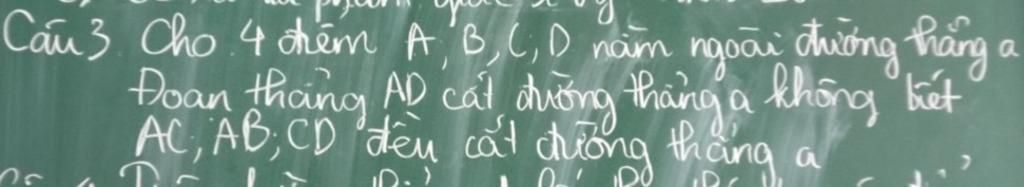 Câu 3 Cho 4 điểm A, B, C, D nằm ngoài đường thẳng a
Đoạn thẳng AD cắt đường thẳng a không biết
AC; AB; CD đều cắt đường thẳng a